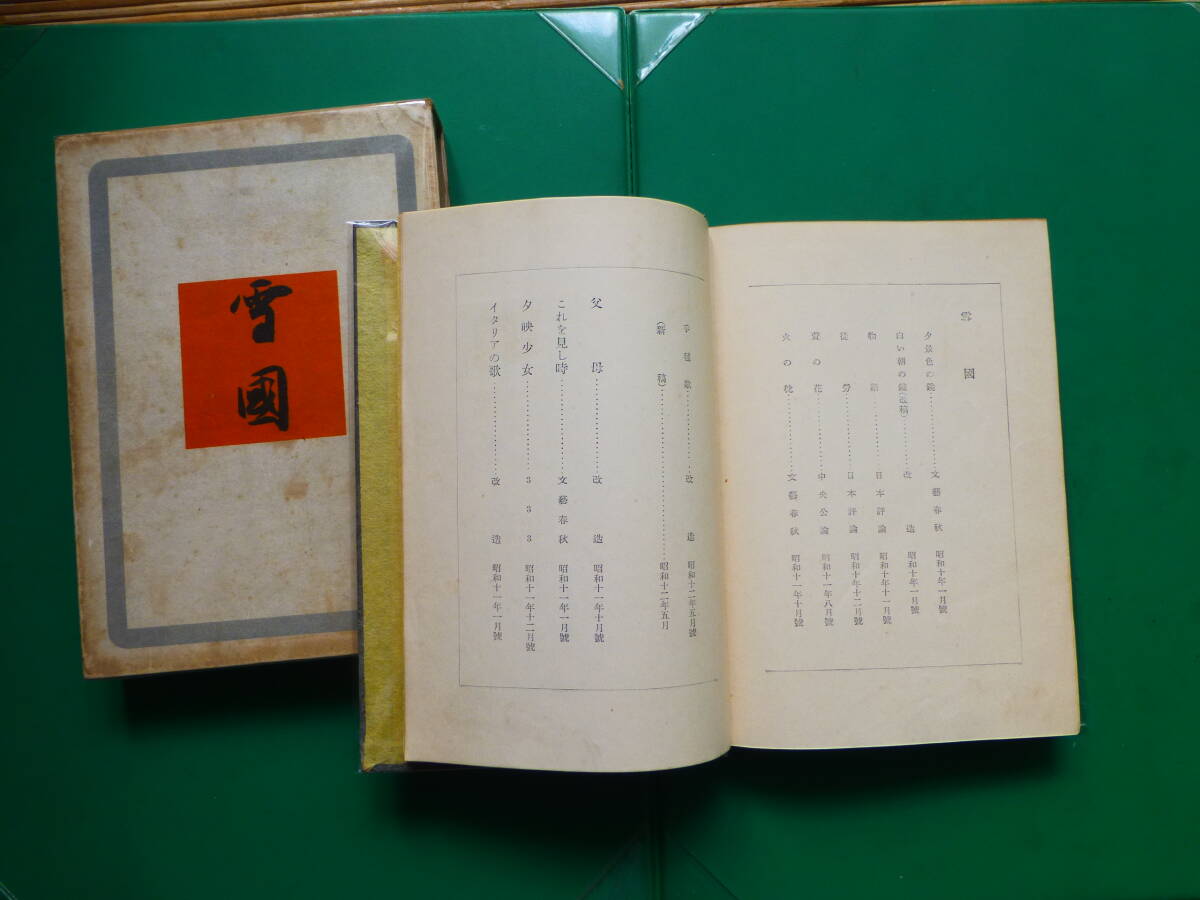 雪國
雪國
夕景色の鏡……………文藝春秋 昭和十年一月號
白い朝の鏡(改稿)……改造 昭和十年一月號
物語……………日本評論 昭和十年十一月號
徒勞……………日本評論 昭和十年十二月號
萱の花……………中央公論 昭和十一年八月號
火の枕……………文藝春秋 昭和十一年十月號
手毬歌……………改造 昭和十二年五月號
(新稿)……………昭和十二年五月
父母……………改造 昭和十一年十月號
これを見し時……………文藝春秋 昭和十一年一月號
夕映少女……………333 昭和十一年十二月號
イタリアの歌……………改造 昭和十一年一月號